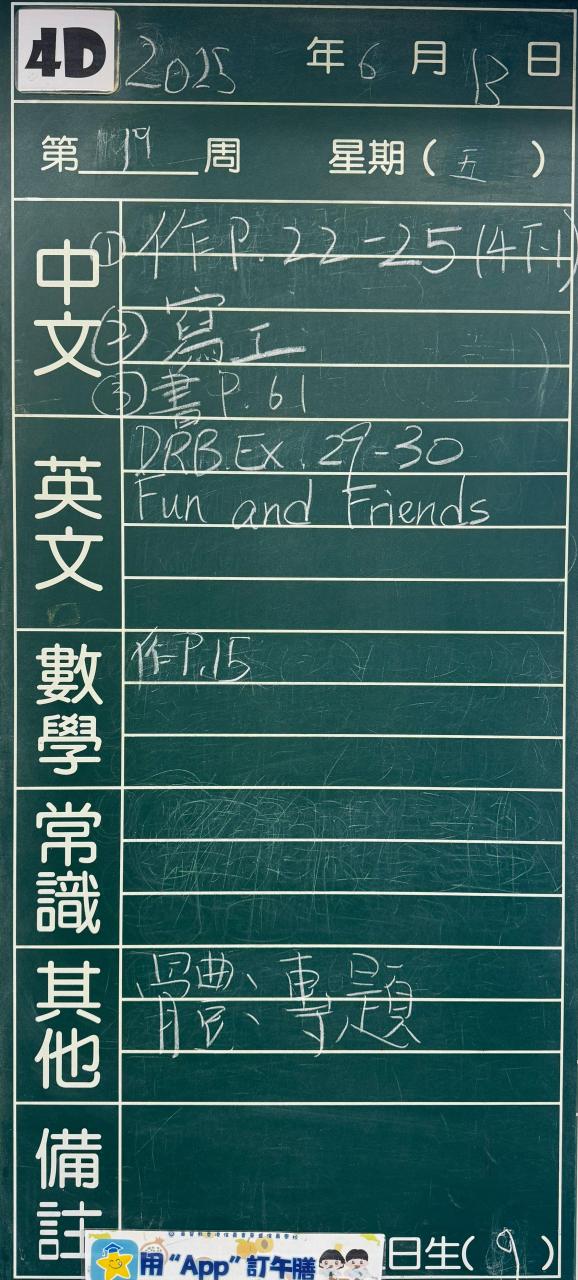 4D 2025 年 6 月 13 日
第 19 周 星期 ( 五 )
中文
① 作 P. 22-25 (4下-1)
② 寫工
③ 書 P. 61
英文
DRB. Ex. 29-30
Fun and Friends
數學
作 P.15
常識
其他
體、專題
備註
用“App”訂午膳
日生( 9 )